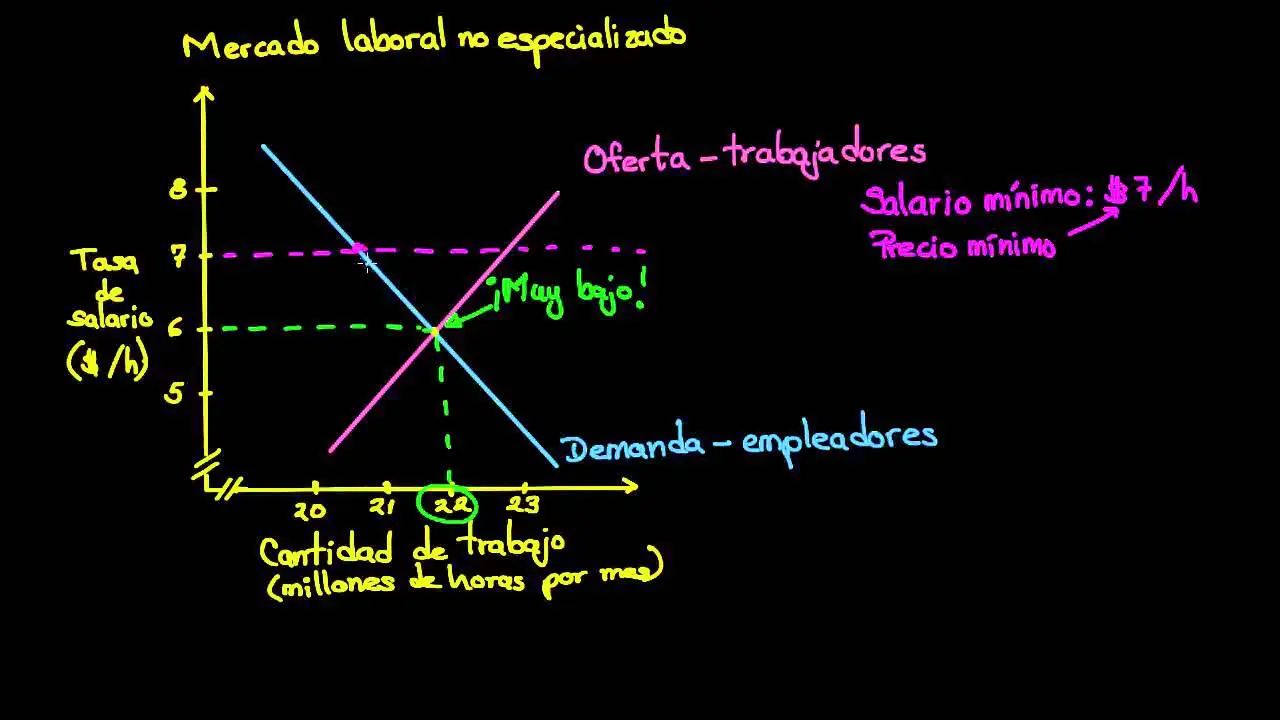 Mercado laboral no especializado
Oferta - trabajadores
Salario mínimo: $7/h
Precio mínimo
8
7
6
5
Tasa
de
salario
($/h)
¡Muy bajo!
Demanda - empleadores
20 21 22 23
Cantidad de trabajo
(millones de horas por mes)